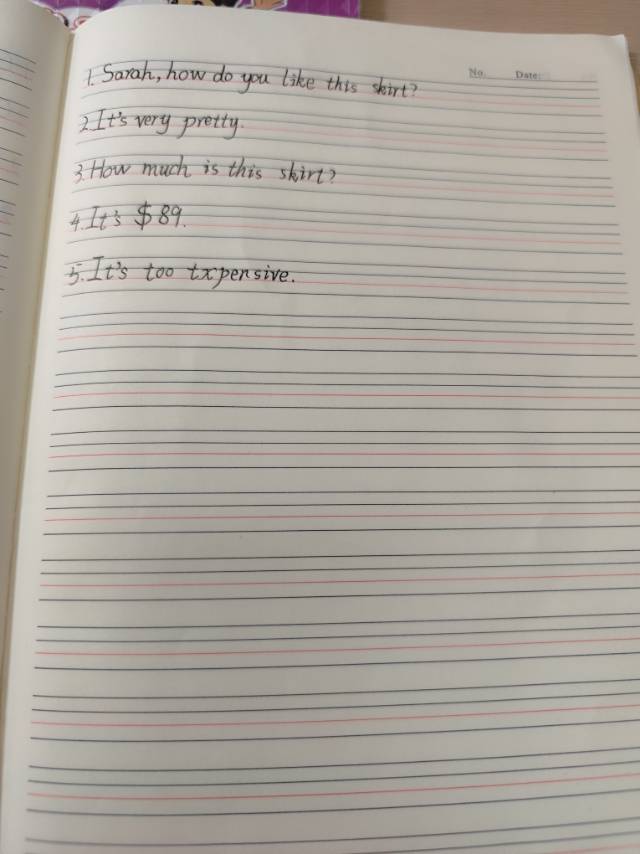 No. Date:
1. Sarah, how do you like this skirt?
2. It's very pretty.
3. How much is this skirt?
4. It's $89.
5. It's too txpensive.